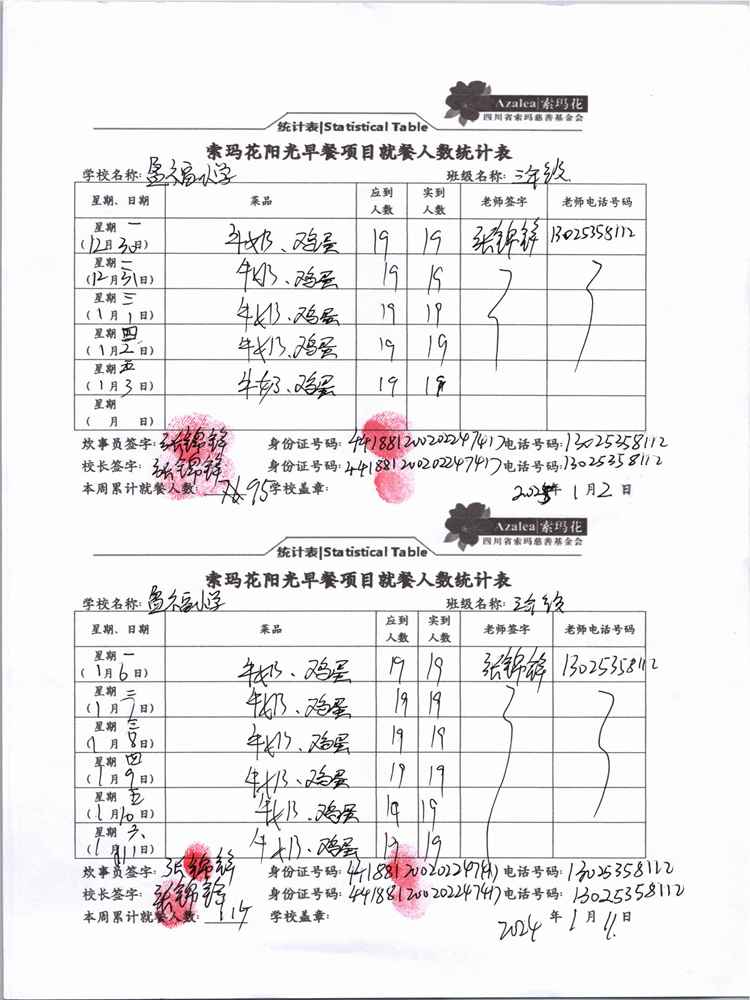 Azalea|索玛花
四川省索玛慈善基金会
统计表|Statistical Table
索玛花阳光早餐项目就餐人数统计表
学校名称: 盈福小学 班级名称: 三年级
星期、日期 菜品 应到人数 实到人数 老师签字 老师电话号码
星期 一 (12月30日) 牛奶、鸡蛋 19 19 张锦锋 13025358112
星期 二 (12月31日) 牛奶、鸡蛋 19 19
星期 三 (1月1日) 牛奶、鸡蛋 19 19
星期 四 (1月2日) 牛奶、鸡蛋 19 19
星期 五 (1月3日) 牛奶、鸡蛋 19 19
星期 ( 月 日)
炊事员签字: 张锦锋 身份证号码: 441881200202247417 电话号码: 13025358112
校长签字: 张锦锋 身份证号码: 441881200202247417 电话号码: 13025358112
本周累计就餐人数: 95 学校盖章: 2025年1月2日
Azalea|索玛花
四川省索玛慈善基金会
统计表|Statistical Table
索玛花阳光早餐项目就餐人数统计表
学校名称: 盈福小学 班级名称: 三年级
星期、日期 菜品 应到人数 实到人数 老师签字 老师电话号码
星期 一 (1月6日) 牛奶、鸡蛋 19 19 张锦锋 13025358112
星期 二 (1月7日) 牛奶、鸡蛋 19 19
星期 三 (1月8日) 牛奶、鸡蛋 19 19
星期 四 (1月9日) 牛奶、鸡蛋 19 19
星期 五 (1月10日) 牛奶、鸡蛋 19 19
星期 六 (1月11日) 牛奶、鸡蛋 19 19
炊事员签字: 张锦锋 身份证号码: 441881200202247417 电话号码: 13025358112
校长签字: 张锦锋 身份证号码: 441881200202247417 电话号码: 13025358112
本周累计就餐人数: 114 学校盖章: 2024年1月11日